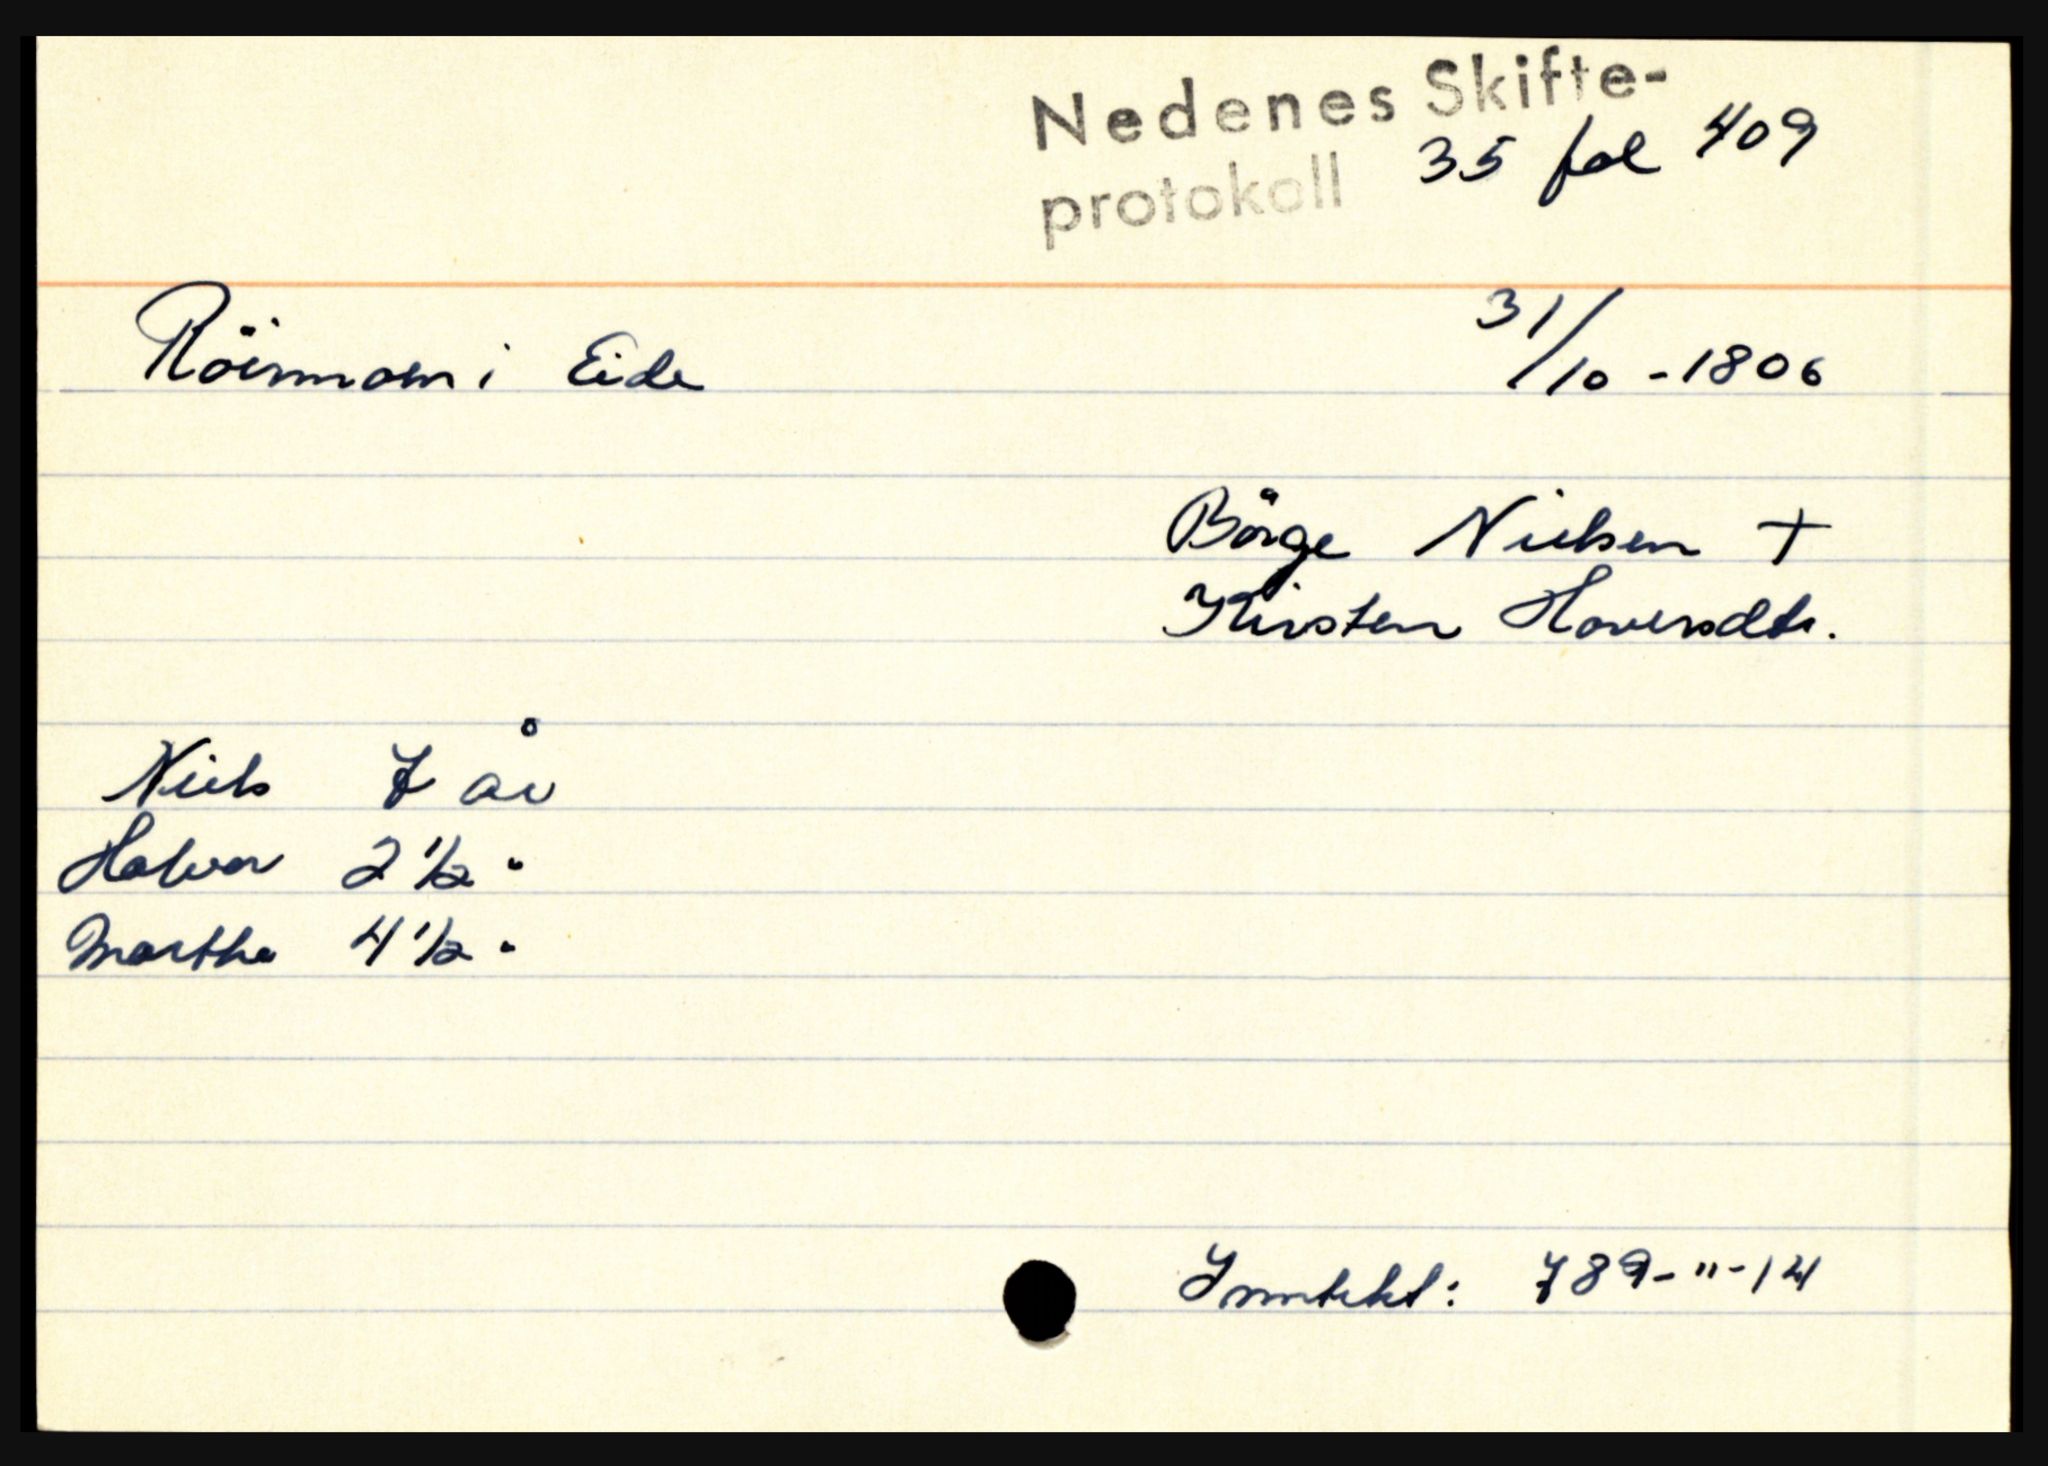 Nedenes Skifte-
protokoll 35 fol 409
Röinmoen i Eide 31/10 - 1806
Börge Nielsen +
Kirsten Haversdtr.
Niels 7 år
Halvor 2 1/2 "
Marthe 4 1/2 "
Inntekt: 789-"-14